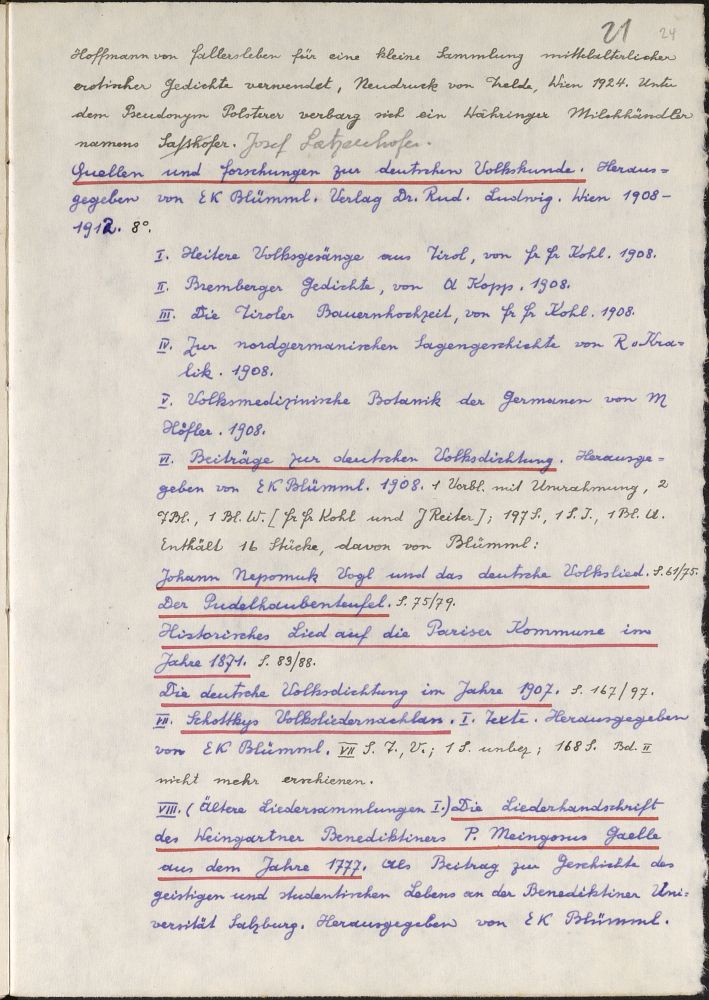 21 24
Hoffmann von Fallersleben für eine kleine Sammlung mittelalterlicher
erotischer Gedichte verwendet, Neudruck von Halde, Wien 1924. Unter
dem Pseudonym Polsterer verbarg sich ein Währinger Milchhändler
namens Josef Latzenhofer.
Quellen und Forschungen zur deutschen Volkskunde. Heraus=
gegeben von EK Blümml. Verlag Dr. Rud. Ludwig. Wien 1908-
1912. 8°.
I. Heitere Volksgesänge aus Tirol, von Fr Fr Kohl. 1908.
II. Bremberger Gedichte, von A Kopp. 1908.
III. Die Tiroler Bauernhochzeit, von Fr Fr Kohl. 1908.
IV. Zur nordgermanischen Sagengeschichte von R v Kra=
lik. 1908.
V. Volksmedizinische Botanik der Germanen von M
Höfler. 1908.
VI. Beiträge zur deutschen Volksdichtung. Herausge=
geben von EK Blümml. 1908. 1 Vorbl. mit Umrahmung, 2
7Bl., 1 Bl. W. [Fr Fr Kohl und J Reiter]; 197 S., 1 S. I., 1 Bl. U.
Enthält 16 Stücke, davon von Blümml:
Johann Nepomuk Vogl und das deutsche Volkslied. S. 61/75.
Der Pudelhaubenteufel. S. 75/79.
Historisches Lied auf die Pariser Kommune im
Jahre 1871. S. 83/88.
Die deutsche Volksdichtung im Jahre 1907. S. 167/97.
VII. Schottkys Volksliedernachlass. I. Texte. Herausgegeben
von EK Blümml. VII S. T., V.; 1 S. unbez; 168 S. Bd. II
nicht mehr erschienen.
VIII. (Ältere Liedersammlungen I.) Die Liederhandschrift
des Weingartner Benediktiners P. Meingosus Gaelle
aus dem Jahre 1777. Als Beitrag zur Geschichte des
geistigen und studentischen Lebens an der Benediktiner Uni=
versität Salzburg. Herausgegeben von EK Blümml.